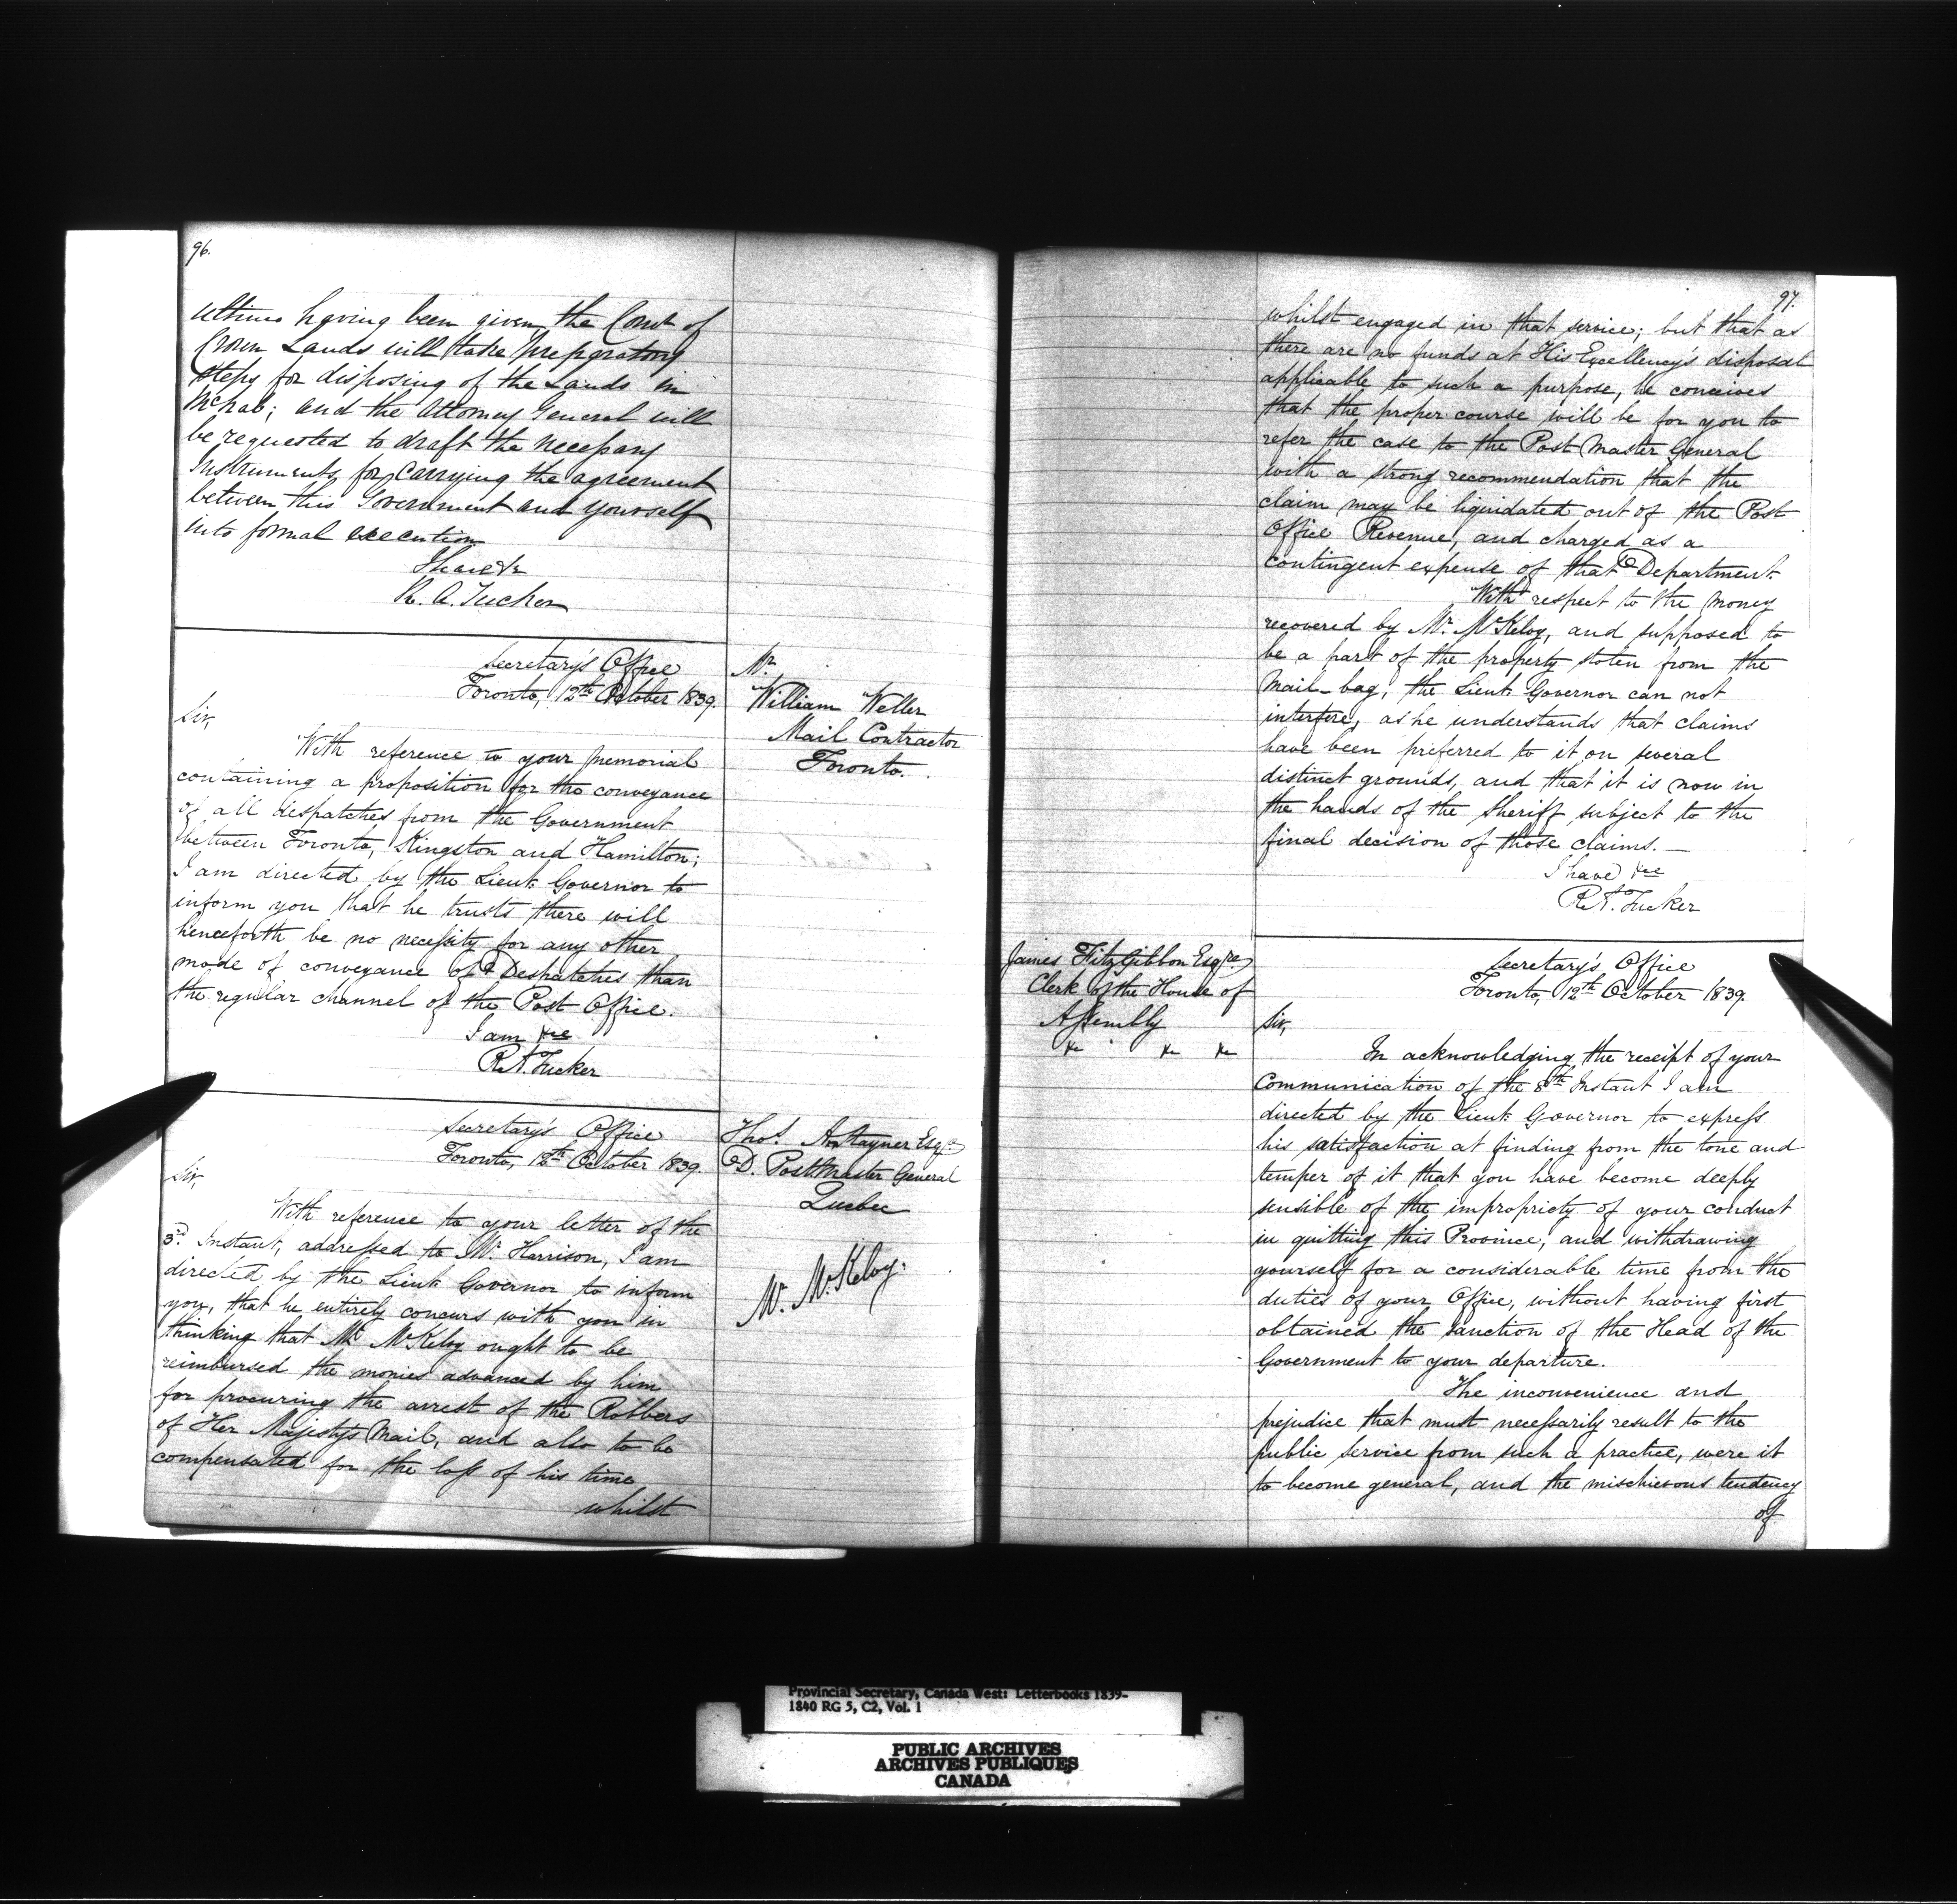 96.
ultimo having been given the Comr of
Crown Lands will take preparatory
steps for disposing of the Lands in
McNab; and the Attorney General will
be requested to draft the necessary
Instruments for carrying the agreement
between this Government and yourself
into formal execution
I have &c
R. A. Tucker
Secretary's Office
Toronto, 12th October 1839.
Mr.
William Weller
Mail Contractor
Toronto.
Sir,
With reference to your Memorial
containing a proposition for the conveyance
of all despatches from the Government
between Toronto, Kingston and Hamilton;
I am directed by the Lieut. Governor to
inform you that he trusts there will
henceforth be no necessity for any other
mode of conveyance of Despatches than
the regular channel of the Post Office.
I am &c
R. A. Tucker
Secretary's Office
Toronto, 12th October 1839.
Thos. A. Stayner Esqr.
D. Post Master General
Quebec
Mr. McKelvy.
Sir,
With reference to your letter of the
3rd. Instant, addressed to Mr. Harrison, I am
directed by the Lieut. Governor to inform
you, that he entirely concurs with you in
thinking that Mr. McKelvy ought to be
reimbursed the monies advanced by him
for procuring the arrest of the Robbers
of Her Majesty's Mail, and also to be
compensated for the loss of his time
whilst
97.
whilst engaged in that service; but that as
there are no funds at His Excellency's disposal
applicable to such a purpose, he conceives
that the proper course will be for you to
refer the case to the Post Master General
with a strong recommendation that the
claim may be liquidated out of the Post
Office Revenue, and charged as a
contingent expense of that Department.
With respect to the money
recovered by Mr. McKelvy, and supposed to
be a part of the property stolen from the
Mail-bag, the Lieut. Governor can not
interfere, as he understands that claims
have been preferred to it on several
distinct grounds, and that it is now in
the hands of the Sheriff subject to the
final decision of those claims.
I have &c
R. A. Tucker
James FitzGibbon Esqre
Clerk of the House of
Assembly
&c &c &c
Secretary's Office
Toronto, 12th October 1839.
Sir,
In acknowledging the receipt of your
Communication of the 8th Instant I am
directed by the Lieut. Governor to express
his satisfaction at finding from the tone and
temper of it that you have become deeply
sensible of the impropriety of your conduct
in quitting this Province, and withdrawing
yourself for a considerable time from the
duties of your Office, without having first
obtained the sanction of the Head of the
Government to your departure.
The inconvenience and
prejudice that must necessarily result to the
public service from such a practice, were it
to become general, and the mischievous tendency
of
Provincial Secretary, Canada West: Letterbooks 1839-
1840 RG 5, C2, Vol. 1
PUBLIC ARCHIVES
ARCHIVES PUBLIQUES
CANADA